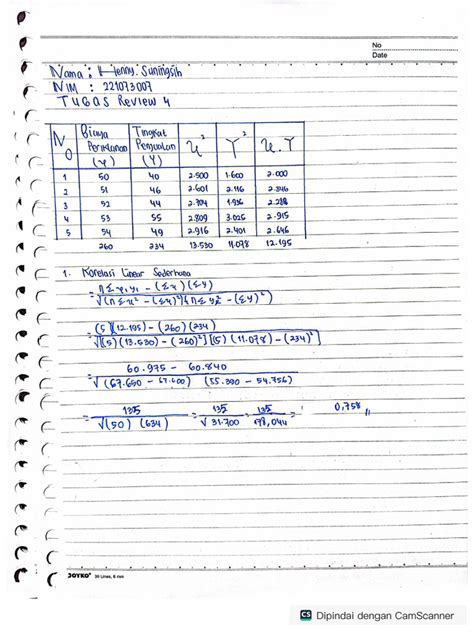 No
Date
Nama : Henny. Suningsih
NIM : 221073007
TUGAS Review 4
No Biaya Periklanan (x) Tingkat Penjualan (Y) x² Y² x.Y
1 50 40 2.500 1.600 2.000
2 51 46 2.601 2.116 2.346
3 52 44 2.704 1.936 2.288
4 53 55 2.809 3.025 2.915
5 54 49 2.916 2.401 2.646
260 234 13.530 11.078 12.195
1. Korelasi Linear Sederhana
= n Σ xiyi - (Σx) (Σy)
√(n Σx² - (Σx)²) (n Σy² - (Σy)²)
= (5)(12.195) - (260)(234)
√[(5)(13.530) - (260)²] [(5)(11.078) - (234)²]
= 60.975 - 60.840
√(67.650 - 67.600) (55.390 - 54.756)
= 135 = 135 = 135 = 0,758 //
√(50) (634) √31.700 178,044
JOYKO® 36 Lines, 6 mm
CS Dipindai dengan CamScanner